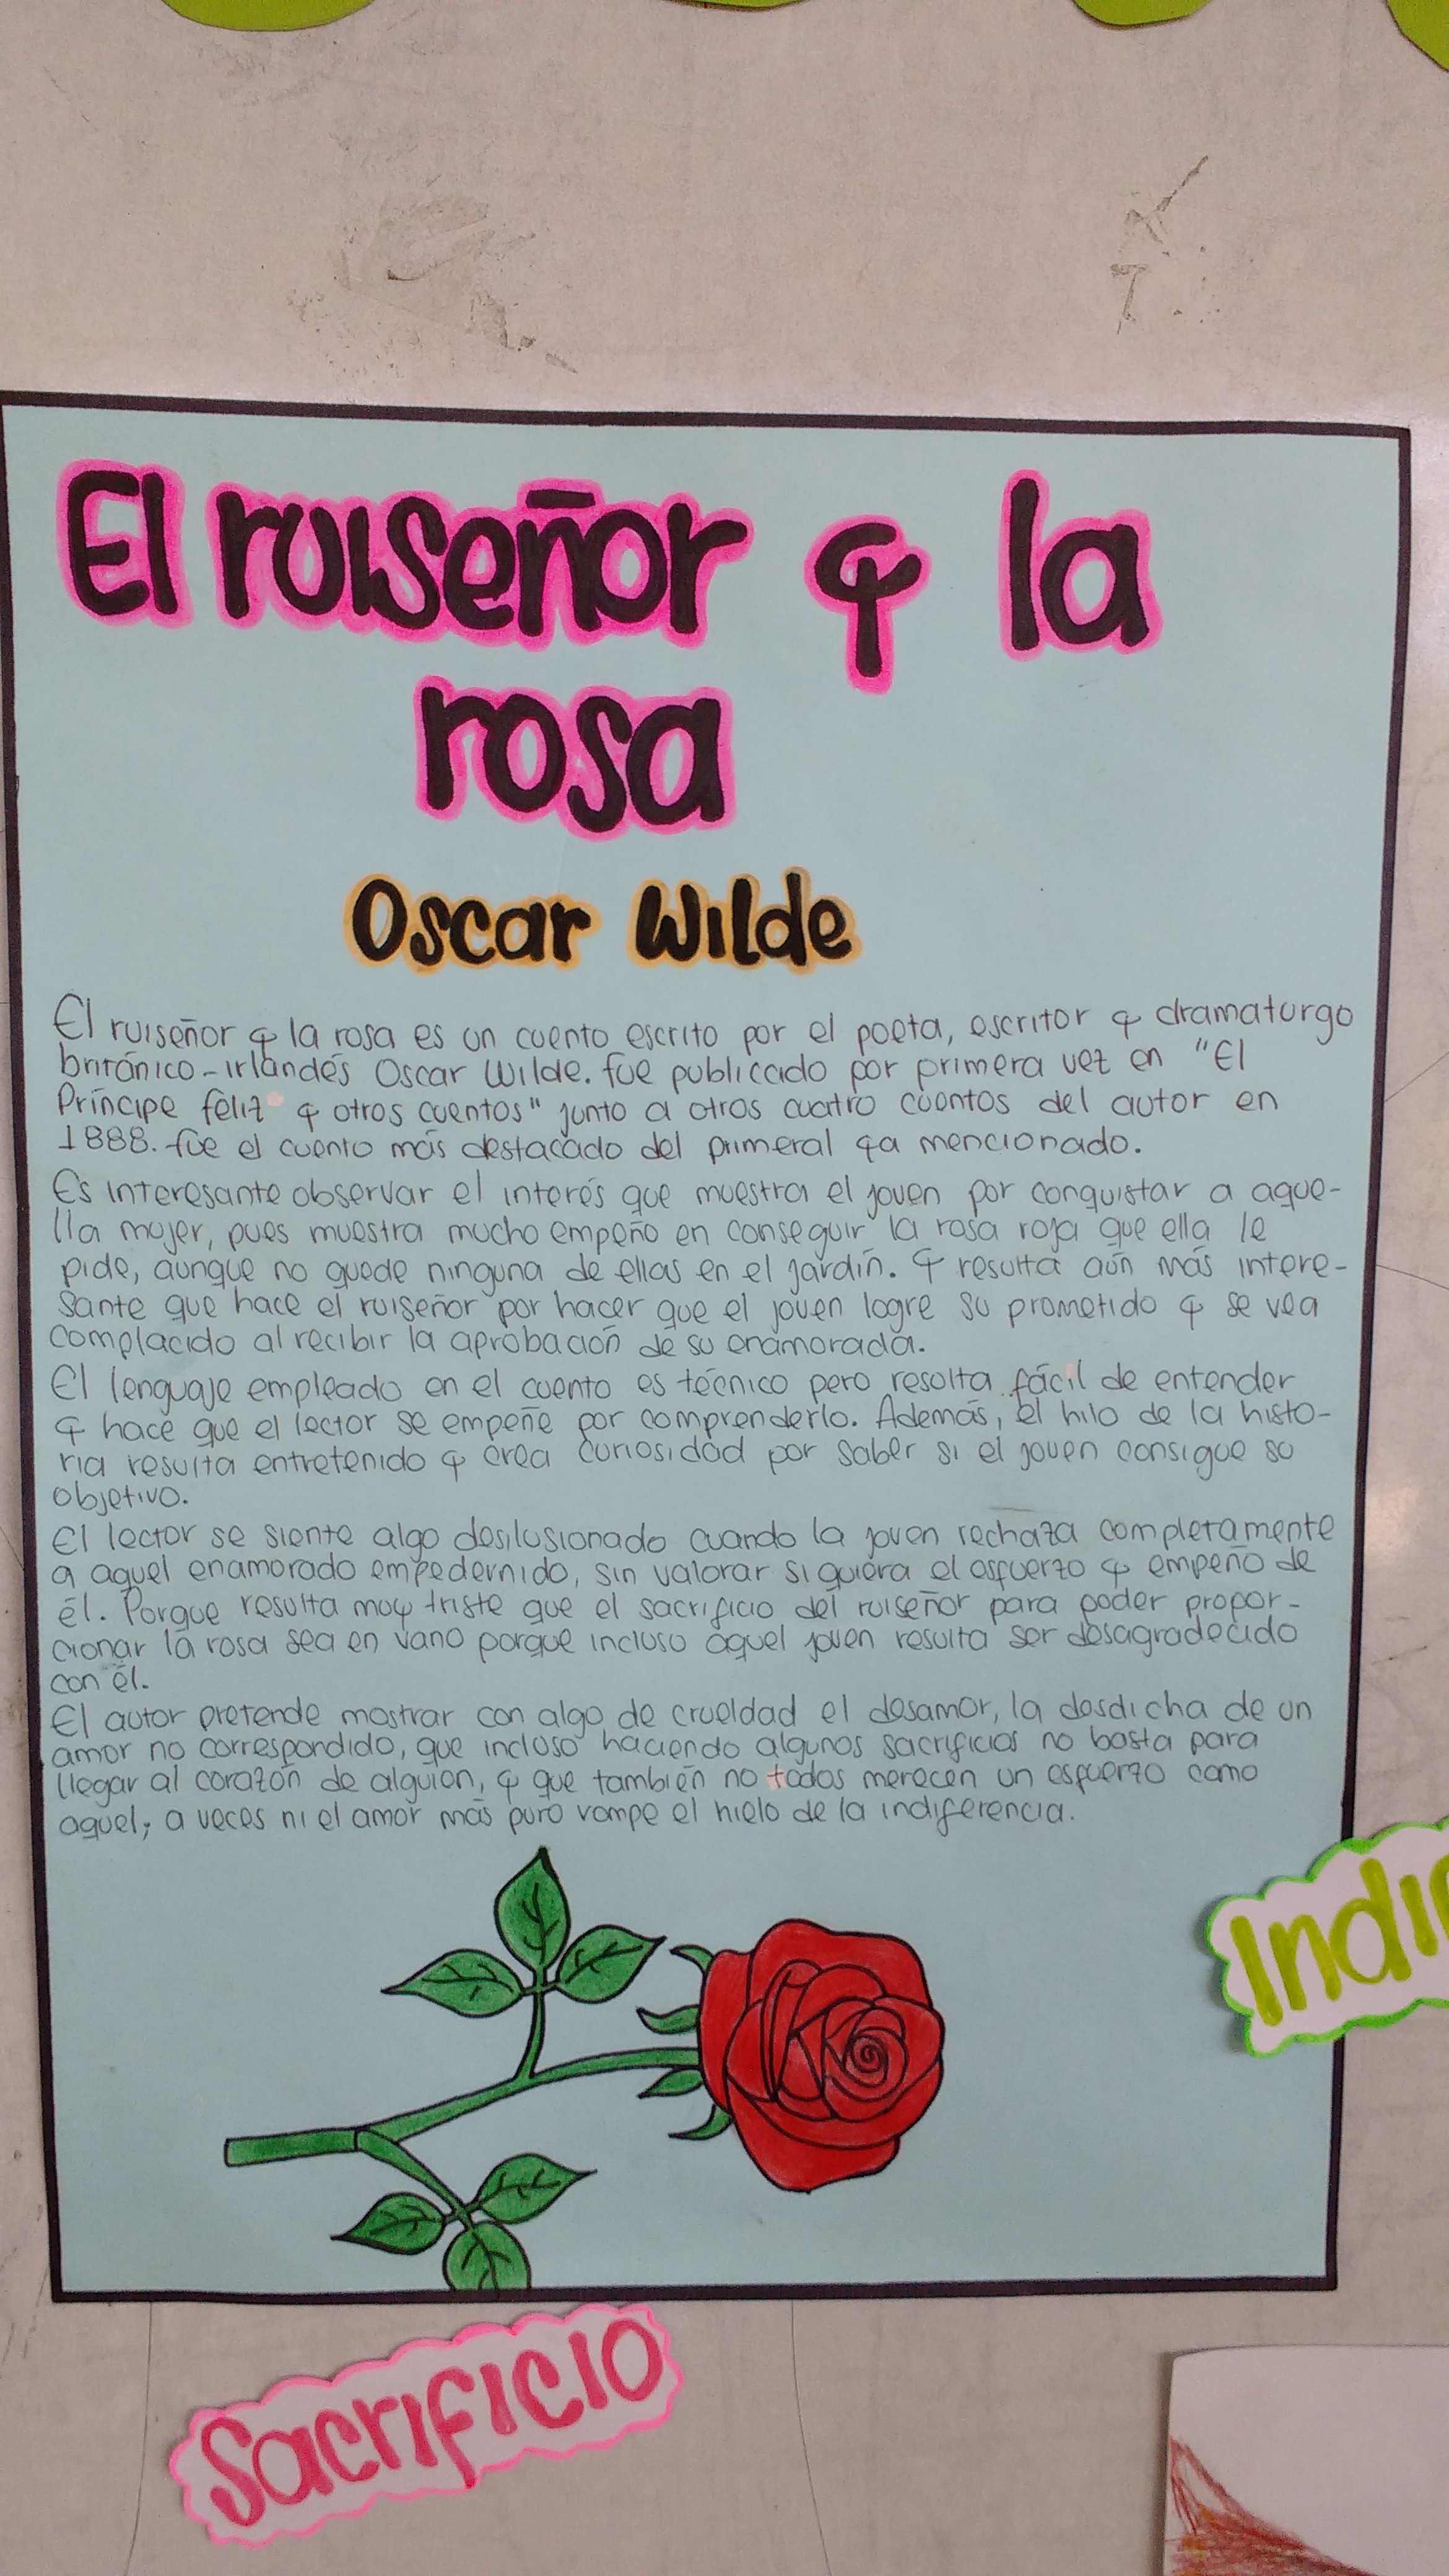 El ruiseñor y la
rosa
Oscar Wilde
El ruiseñor y la rosa es un cuento escrito por el poeta, escritor y dramaturgo
británico-irlandés Oscar Wilde. fue publicado por primera vez en "El
Príncipe feliz y otros cuentos" junto a otros cuatro cuentos del autor en
1888. fue el cuento más destacado del primeral ya mencionado.
Es interesante observar el interés que muestra el joven por conquistar a aque-
lla mujer, pues muestra mucho empeño en conseguir la rosa roja que ella le
pide, aunque no quede ninguna de ellas en el jardín. Y resulta aún más intere-
sante que hace el ruiseñor por hacer que el joven logre su prometido y se vea
complacido al recibir la aprobación de su enamorada.
El lenguaje empleado en el cuento es técnico pero resulta fácil de entender
y hace que el lector se empeñe por comprenderlo. Además, el hilo de la histo-
ria resulta entretenido y crea curiosidad por saber si el joven consigue su
objetivo.
El lector se siente algo desilusionado cuando la joven rechaza completamente
a aquel enamorado empedernido, sin valorar siquiera el esfuerzo y empeño de
él. Porque resulta muy triste que el sacrificio del ruiseñor para poder propor-
cionar la rosa sea en vano porque incluso aquel joven resulta ser desagradecido
con él.
El autor pretende mostrar con algo de crueldad el desamor, la desdicha de un
amor no correspondido, que incluso haciendo algunos sacrificios no basta para
llegar al corazón de alguien, y que también no todos merecen un esfuerzo como
aquel; a veces ni el amor más puro rompe el hielo de la indiferencia.
Indi
Sacrificio